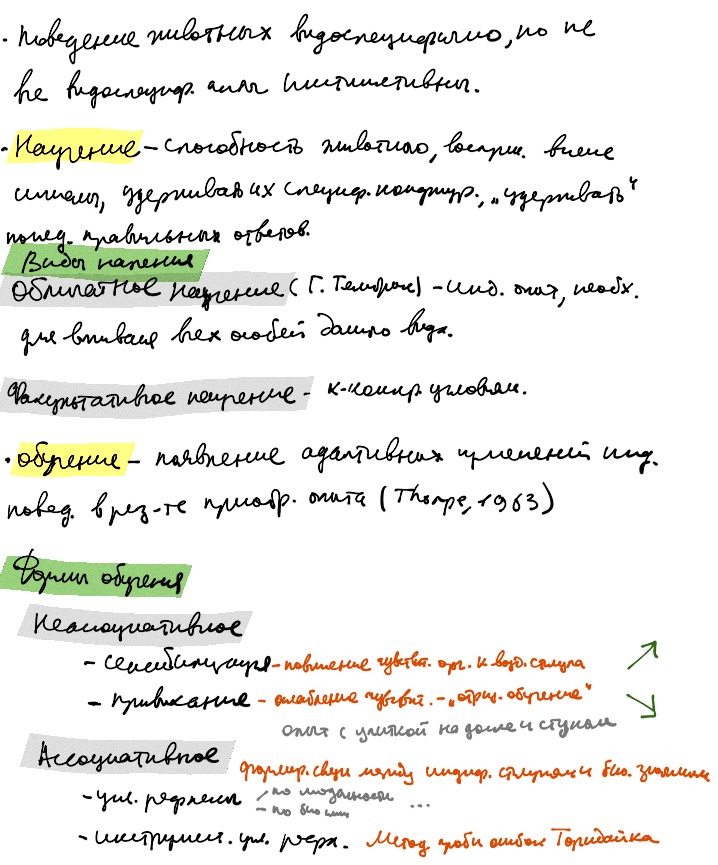 · Поведение животных видоспецифично, но не
все видоспециф. акты инстинктивны.
· Научение – способность животного, восприн. внеш
сигналы, удерживать их специф. конфигур., „удерживать“
повед. правильных ответов.
Виды научения
Облигатное научение (Г. Темброк) – инд. опыт, необх.
для выживания всех особей данного вида.
Факультативное научение – к конкр. условиям.
· обучение – появление адаптивных изменений инд.
повед. в рез-те приобр. опыта (Thorpe, 1963)
Формы обучения
Неассоциативное
– сенсибилизация – повышение чувств. орг. к возд. стимула
– привыкание – ослабление чувств. – „отриц. обучение“
опыт с улиткой на доске и стуком
Ассоциативное формир. связи между индиф. стимулом и био. значимым
– усл. рефлексы – по модальности
– по био ...
– инструмент. усл. рефл. Метод проб и ошибок Торндайка